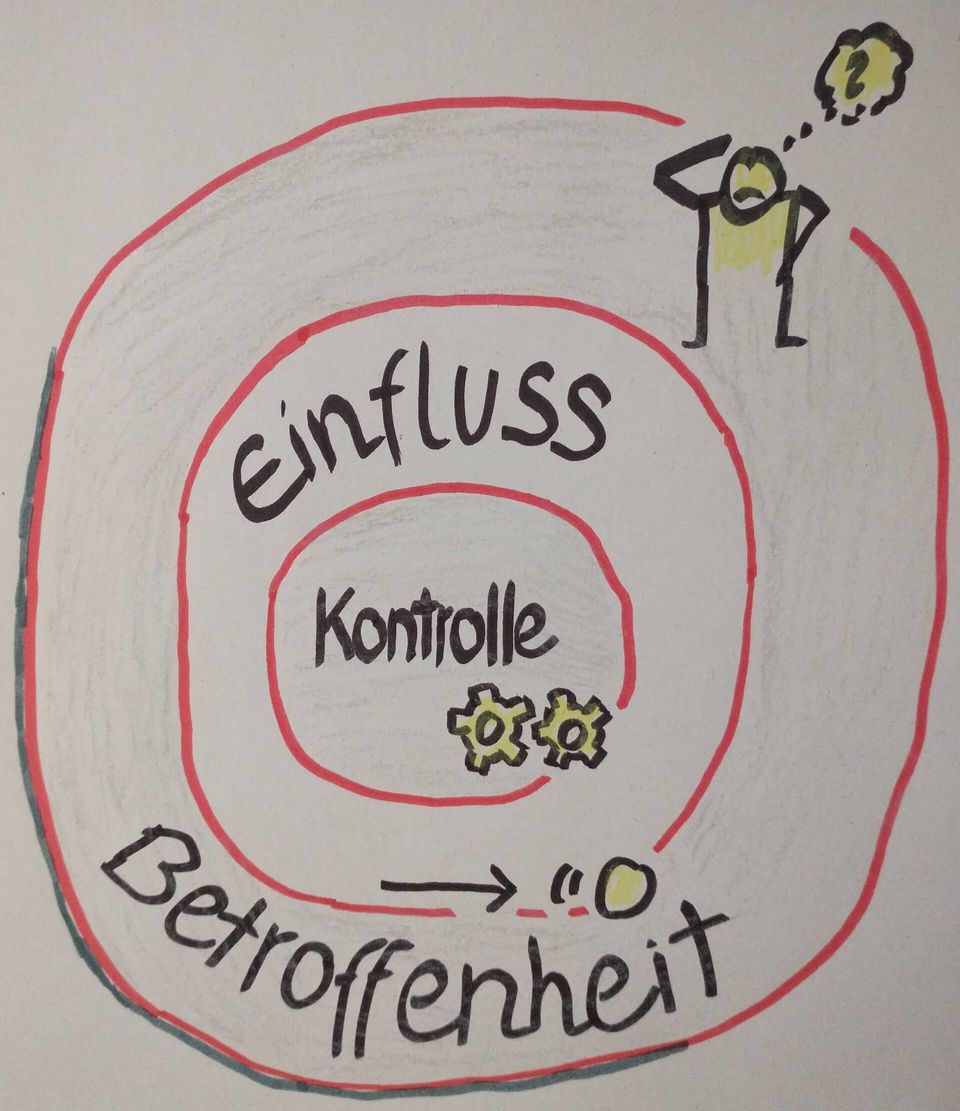 ?
Einfluss
Kontrolle
Betroffenheit